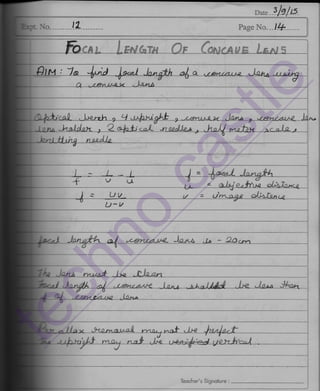 Date 3/9/15
Expt. No. 12
Page No. 14
FOCAL LENGTH OF CONCAVE LENS
AIM : To find focal length of a concave lens using
a convex lens
Optical bench, 4 upright, convex lens, concave lens
lens holder, 2 optical needles, half meter scale,
knitting needle
1/f = 1/v - 1/u
f = focal length
u = objective distance
f = uv/u-v
v = image distance
focal length of concave lens is - 20cm
The lens must be clean
Focal length of concave lens should be less than
f of concave lens
Parallax removal may not be perfect
The upright may not be vertical.
Teacher's Signature :
techno castle